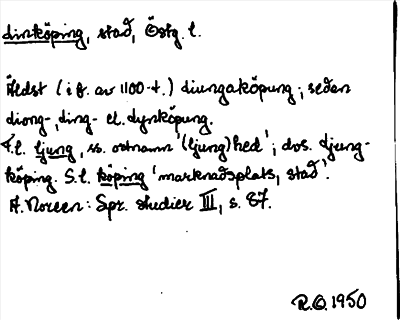 Linköping, stad, Östg. l.
Äldst (i b. av 1100-t.) diungaköpung; sedan
diong-, ding- el. dynköpung.
F.l. ljung, ss. ortnamn '(ljung)hed'; dvs. Ljung-
köping. S.l. köping 'marknadsplats, stad'.
A. Noreen: Spr. studier III, s. 87.
R.O. 1950